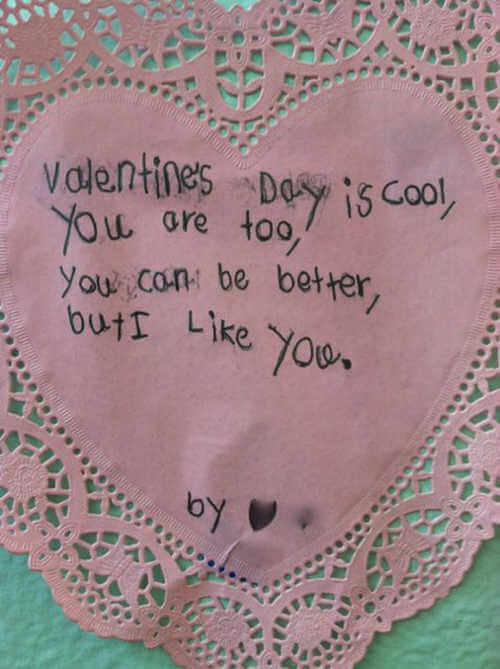 Valentines Day is cool,
You are too,
You can be better,
but I Like You.
by